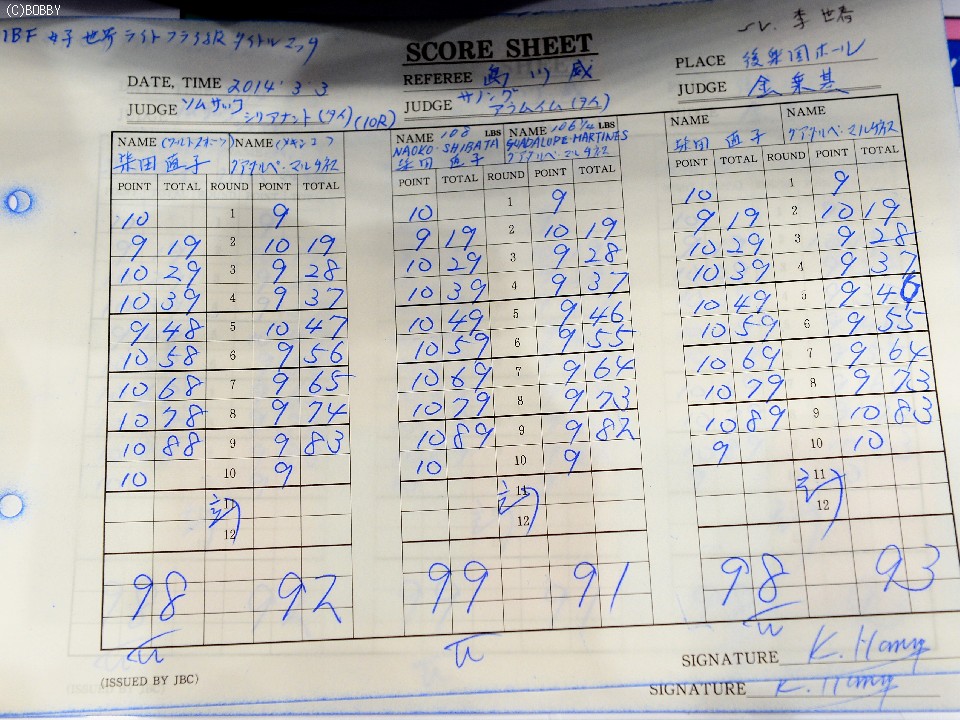 (C)BOBBY
IBF 女子 世界 ライトフライ級 タイトルマッチ
SV. 李
SCORE SHEET
DATE, TIME 2014.3.3
REFEREE
PLACE 後楽園ホール
JUDGE ソムサック シリアナント (タイ) (10R)
JUDGE サノング アウムイム (タイ)
JUDGE 金 秉基
NAME (ワールドスポーツ) NAME (メキシコ)
柴田 直子 グアダルペ・マルチネス
POINT TOTAL ROUND POINT TOTAL
10 1 9
9 19 2 10 19
10 29 3 9 28
10 39 4 9 37
9 48 5 10 47
10 58 6 9 56
10 68 7 9 65
10 78 8 9 74
10 88 9 9 83
10 10 9
11
12
98 92
NAME 108 LBS NAME 106 1/4 LBS
NAOKO・SHIBATA GUADALUPE・MARTINES
柴田 直子 グアダルペ・マルチネス
POINT TOTAL ROUND POINT TOTAL
10 1 9
9 19 2 10 19
10 29 3 9 28
10 39 4 9 37
10 49 5 9 46
10 59 6 9 55
10 69 7 9 64
10 79 8 9 73
10 89 9 9 82
10 10 9
11
12
99 91
NAME NAME
柴田 直子 グアダルペ・マルチネス
POINT TOTAL ROUND POINT TOTAL
10 1 9
9 19 2 10 19
10 29 3 9 28
10 39 4 9 37
10 49 5 9 46
10 59 6 9 55
10 69 7 9 64
10 79 8 9 73
10 89 9 10 83
9 10 10
11
12
98 93
(ISSUED BY JBC)
SIGNATURE
SIGNATURE